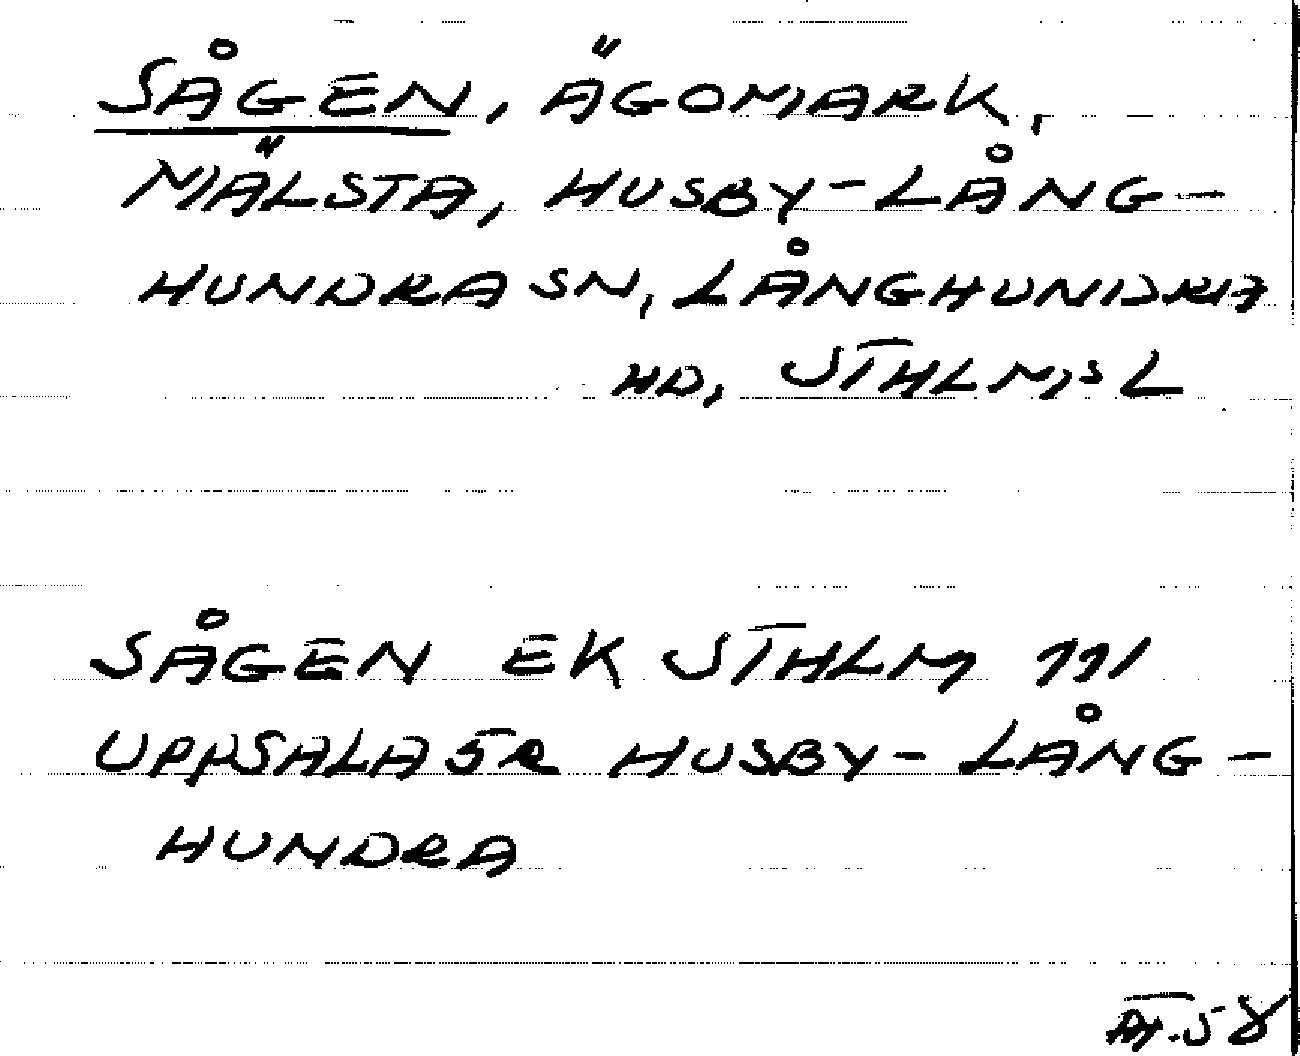 SÅGEN, ÄGOMARK,
MÄLSTA, HUSBY-LÅNG-
HUNDRA SN, LÅNGHUNDRA
HD, STHLMS L
SÅGEN EK STHLM 111
UPPSALA SR HUSBY-LÅNG-
HUNDRA